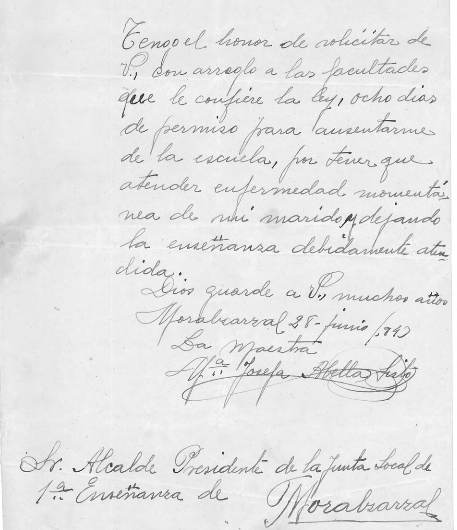 Tengo el honor de solicitar de
V., con arreglo a las facultades
que le confiere la ley, ocho dias
de permiso para ausentarme
de la escuela, por tener que
atender enfermedad momentá-
nea de mi marido y dejando
la enseñanza debidamente aten-
dida.
Dios guarde a V., muchos años
Moralzarzal 28 - junio
La Maestra
Mª Josefa Abella
Sr. Alcalde Presidente de la Junta Local de
1ª Enseñanza de Moralzarzal